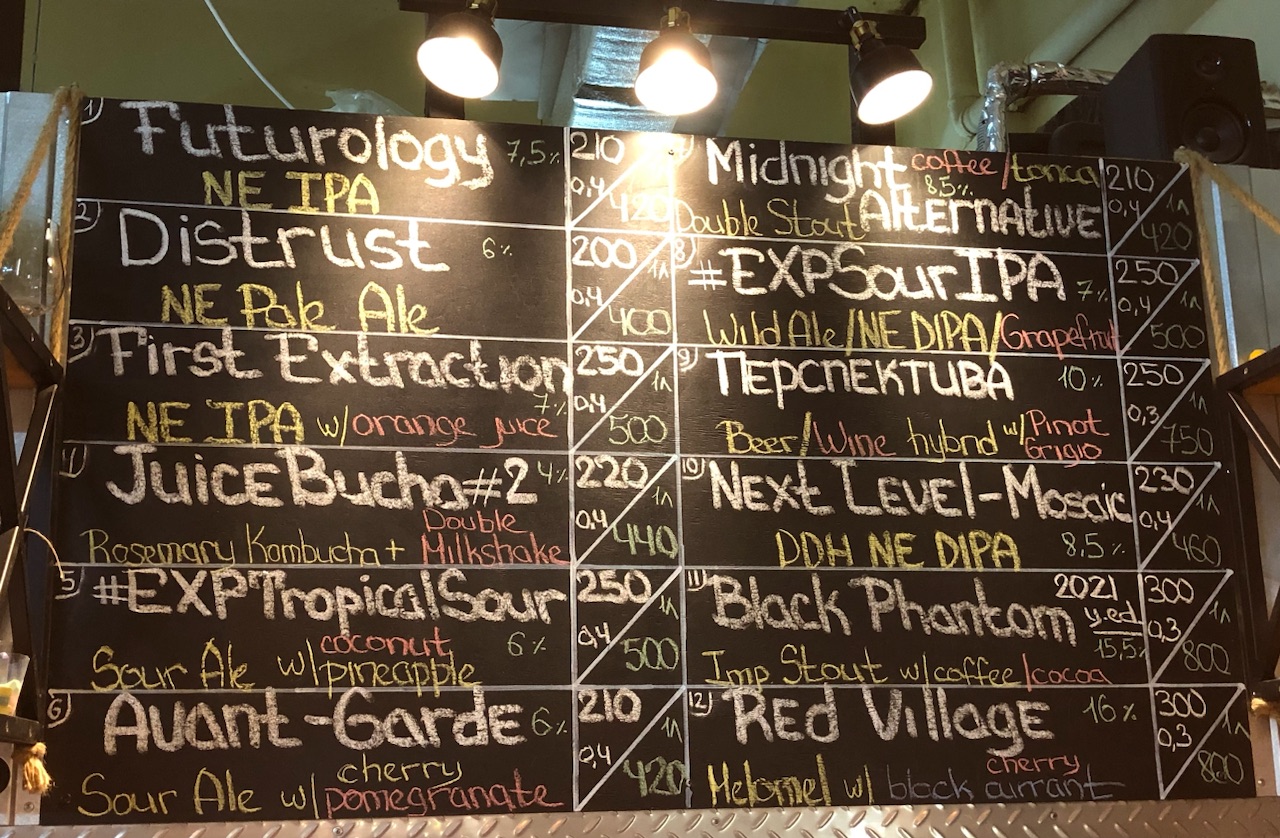 1) Futurology 7,5%
NE IPA
210
0,4
420
2) Distrust 6%
NE Pale Ale
200 1л
0,4
400
3) First Extraction
7%
NE IPA w/orange juice
250 1л
0,4
500
4) JuiceBucha#2 4%
Double
Rosemary Kombucha + Milkshake
220 1л
0,4
440
5 #EXPTropicalSour
coconut 6%
Sour Ale w/pineapple
250 1л
0,4
500
6) Avant-Garde 6%
cherry
Sour Ale w/pomegranate
210 1л
0,4
420
Midnight coffee/tonca
8,5%
Double Stout Alternative
210
0,4 1л
420
8) #EXPSourIPA 7%
Wild Ale/NE DIPA/Grapefruit
250
0,4 1л
500
9) Перспектива 10%
Beer/Wine hybrid w/Pinot
Grigio
250
0,3 1л
750
10) Next Level-Mosaic
DDH NE DIPA 8,5%
230
0,4 1л
460
11) Black Phantom 2021
y.ed.
15,5%
Imp. Stout w/coffee/cocoa
300
0,3 1л
800
12) Red Village 16%
cherry
Melomel w/ black currant
300
0,3 1л
800